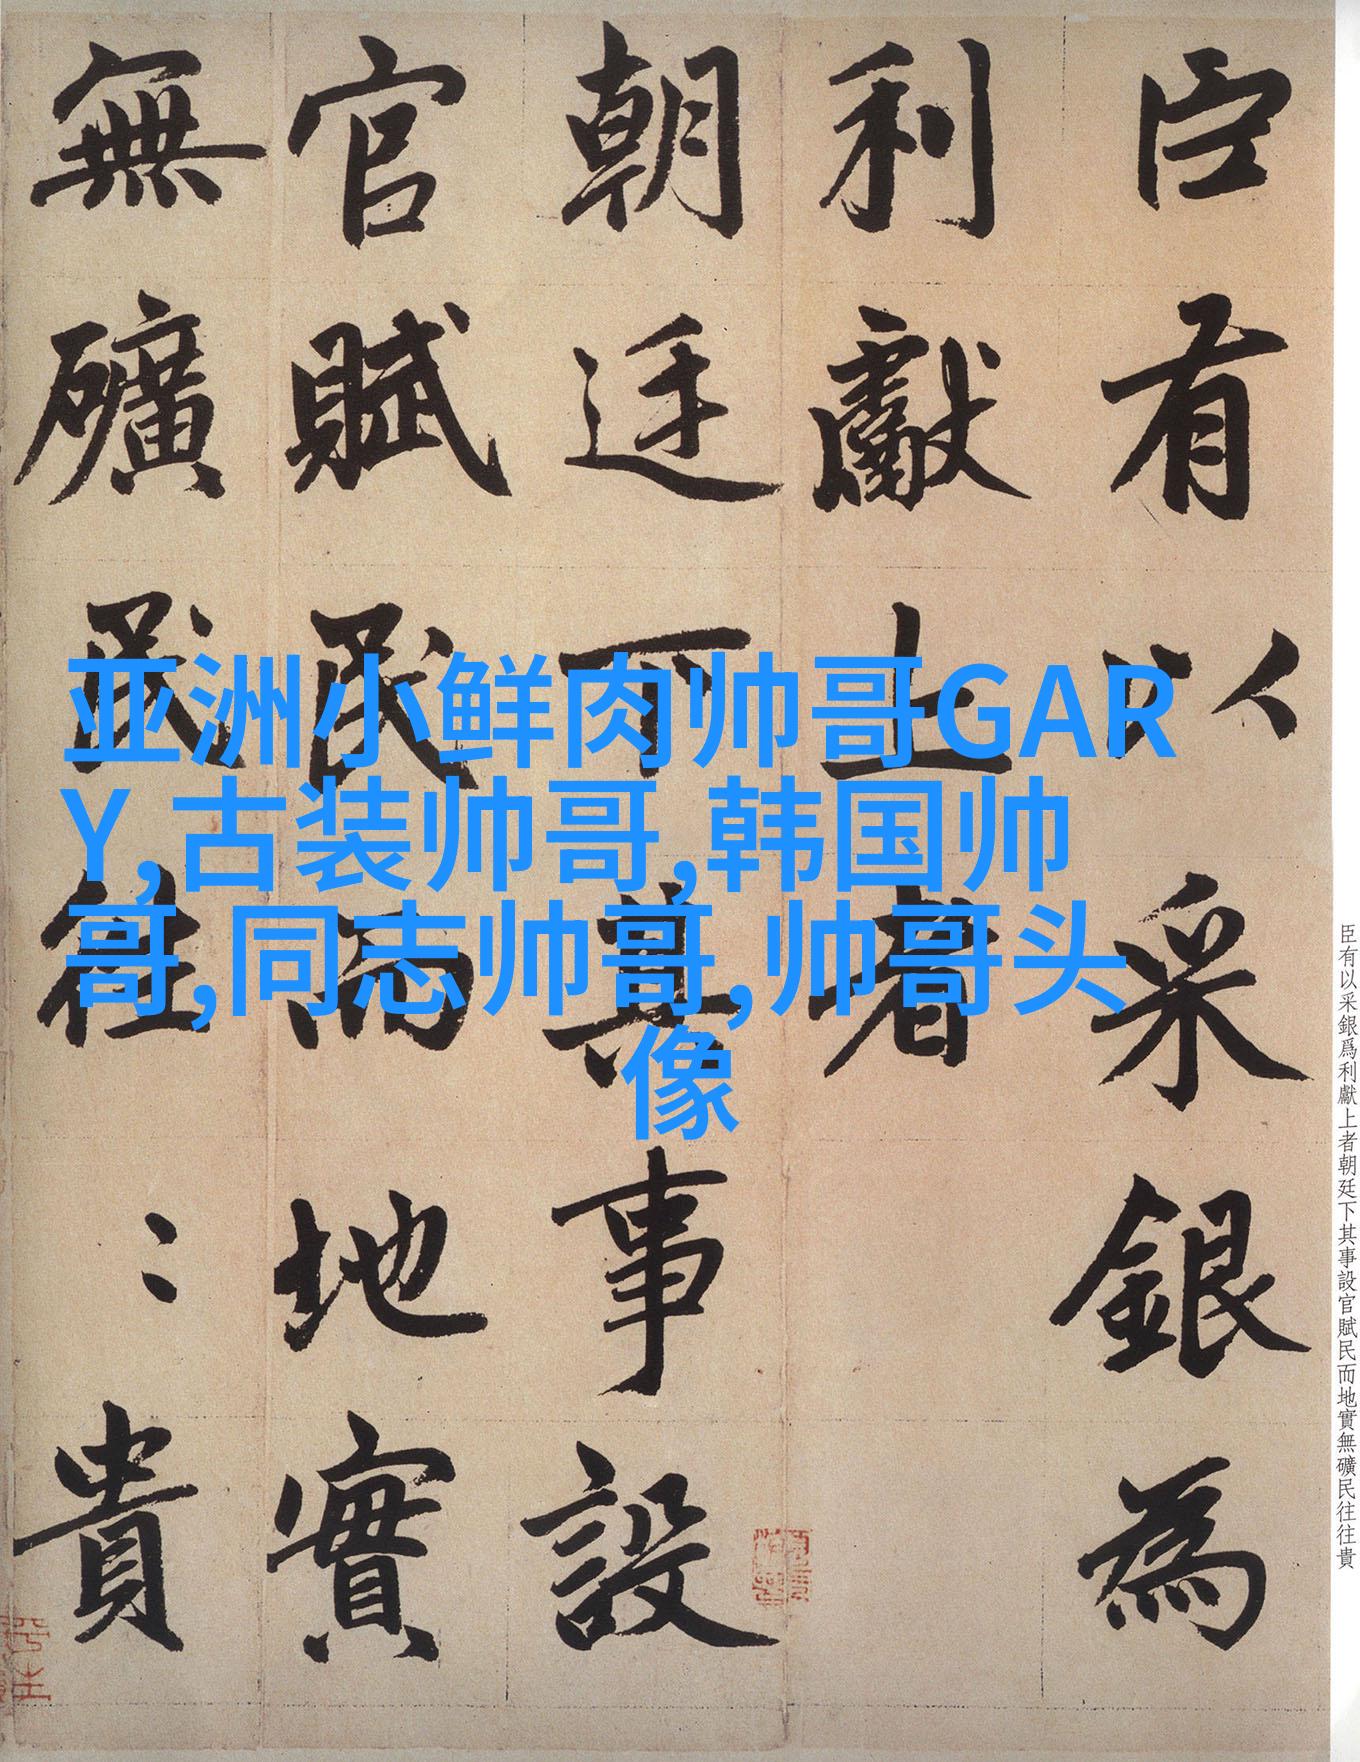 臣有以采銀為
利獻上者
朝廷下其事設
官賦民而地實
無礦民往〻貴
亚洲小鲜肉帅哥GAR
Y,古装帅哥,韩国帅
哥,同志帅哥,帅哥头
像
臣有以采銀爲利獻上者朝廷下其事設官賦民而地實無礦民往往貴